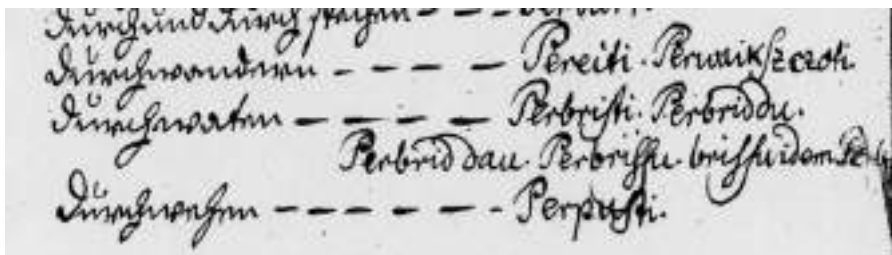 Durchunddurch stechen – – –
Durchwandern – – – – Pereiti. Perwaikszczoti.
Durchwaten – – – – – Perbristi. Perbriddu.
Perbriddau. Perbrissu. brissuidam
Durchwehen – – – – – – Perpusti.